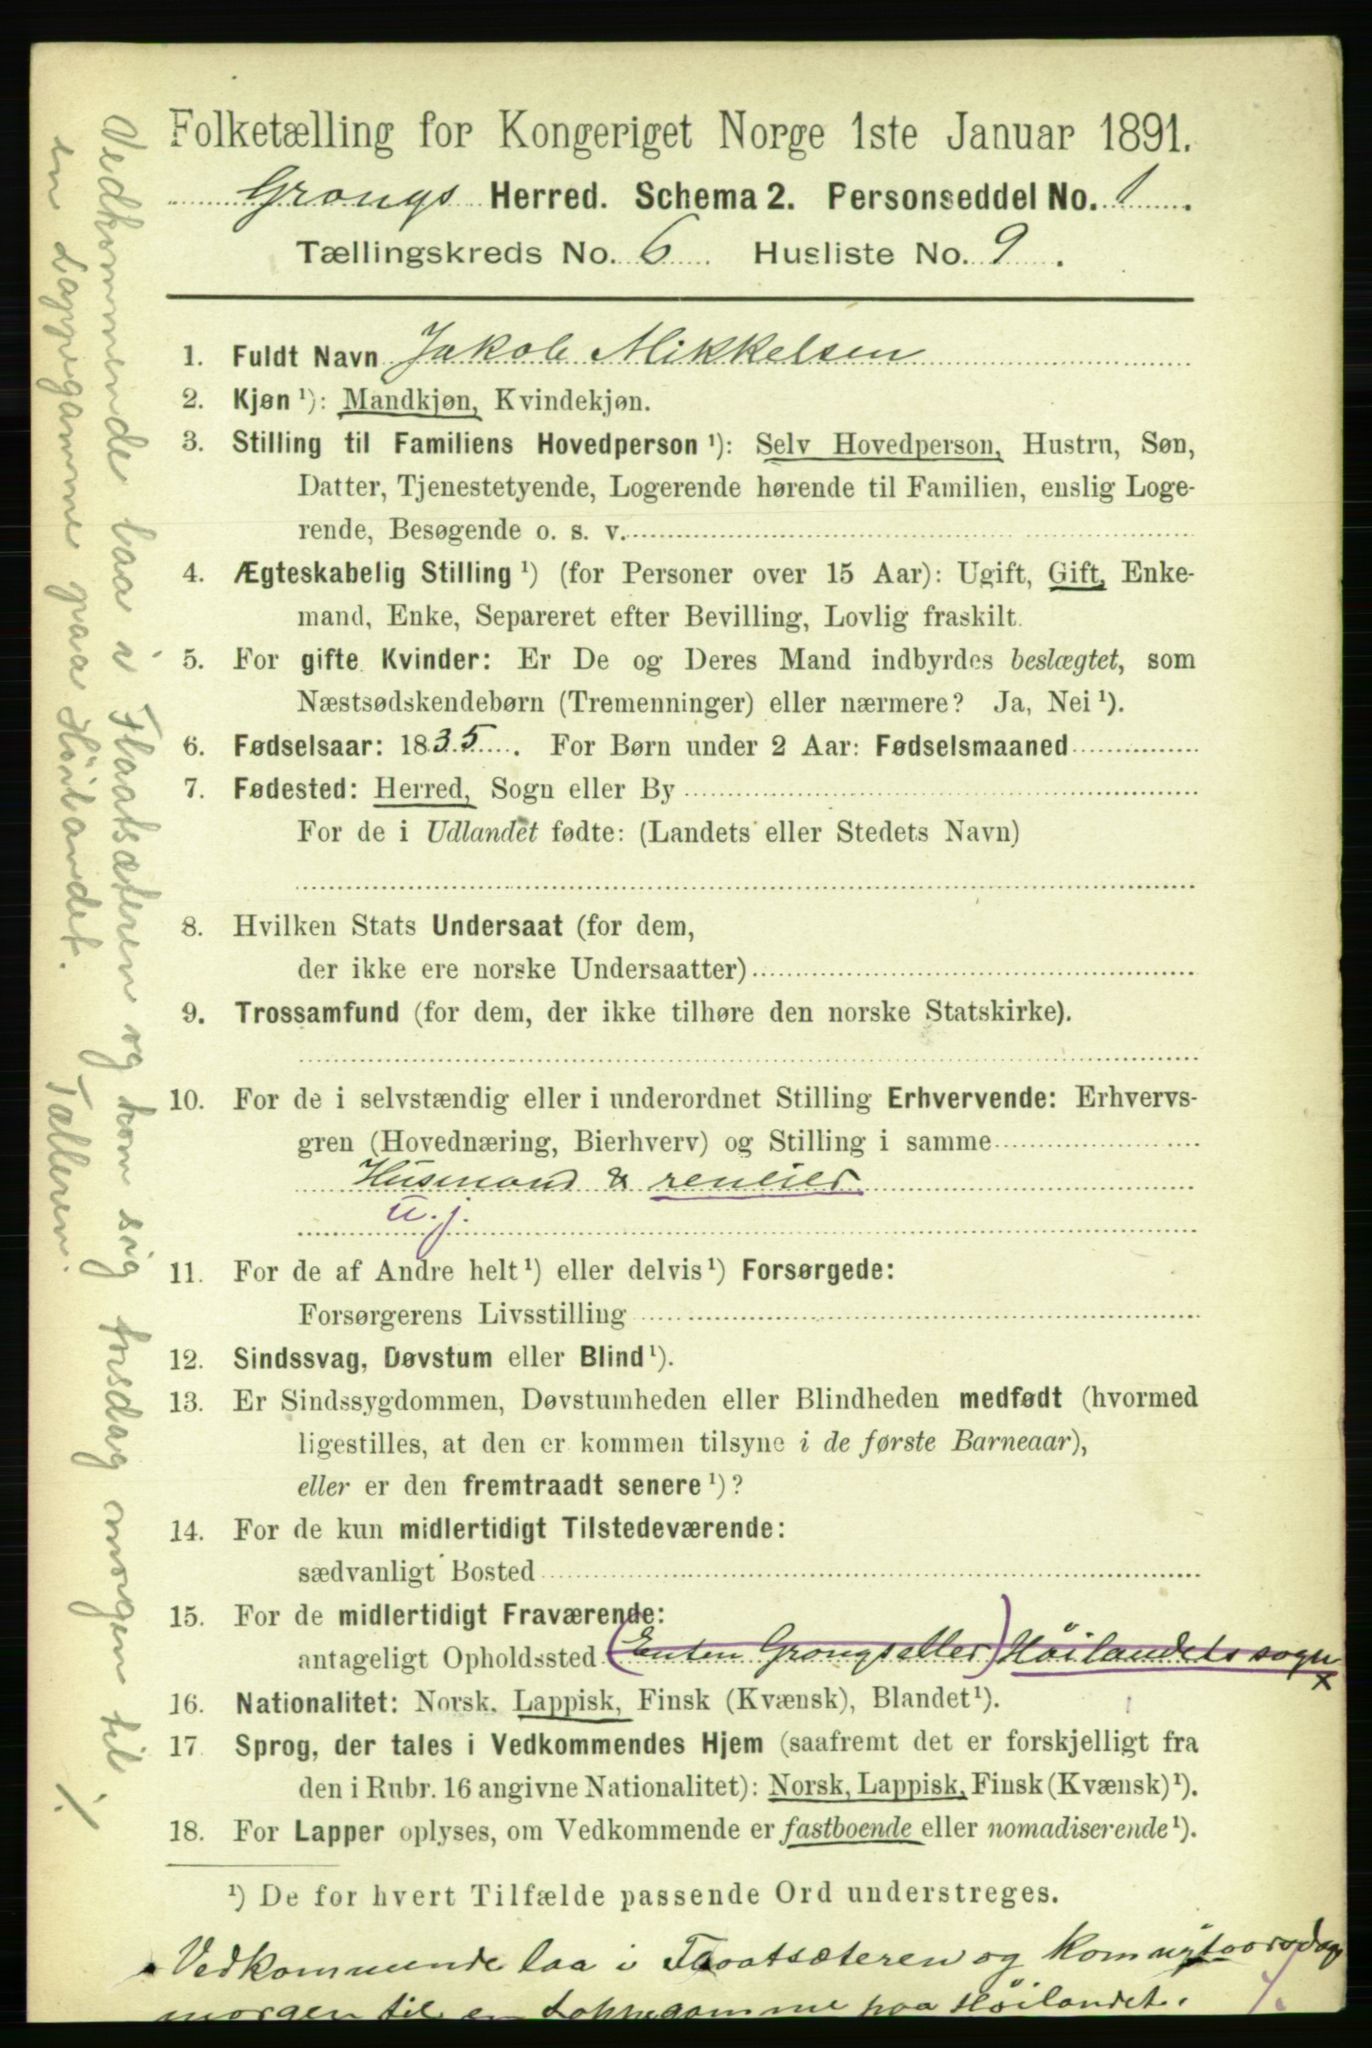 Folketælling for Kongeriget Norge 1ste Januar 1891.
Grongs Herred. Schema 2. Personseddel No. 1.
Tællingskreds No. 6. Husliste No. 9.
1. Fuldt Navn Jakob Mikkelsen
2. Kjøn ¹): Mandkjøn, Kvindekjøn.
3. Stilling til Familiens Hovedperson ¹): Selv Hovedperson, Hustru, Søn,
Datter, Tjenestetyende, Logerende hørende til Familien, enslig Loge-
rende, Besøgende o. s. v.
4. Ægteskabelig Stilling ¹) (for Personer over 15 Aar): Ugift, Gift, Enke-
mand, Enke, Separeret efter Bevilling, Lovlig fraskilt.
5. For gifte Kvinder: Er De og Deres Mand indbyrdes beslægtet, som
Næstsødskendebørn (Tremenninger) eller nærmere? Ja, Nei ¹).
6. Fødselsaar: 1835. For Børn under 2 Aar: Fødselsmaaned
7. Fødested: Herred, Sogn eller By
For de i Udlandet fødte: (Landets eller Stedets Navn)
8. Hvilken Stats Undersaat (for dem,
der ikke ere norske Undersaatter)
9. Trossamfund (for dem, der ikke tilhøre den norske Statskirke).
10. For de i selvstændig eller i underordnet Stilling Erhvervende: Erhvervs-
gren (Hovednæring, Bierhverv) og Stilling i samme
Husmand & reneier
u. j.
11. For de af Andre helt ¹) eller delvis ¹) Forsørgede:
Forsørgerens Livsstilling
12. Sindssvag, Døvstum eller Blind ¹).
13. Er Sindssygdommen, Døvstumheden eller Blindheden medfødt (hvormed
ligestilles, at den er kommen tilsyne i de første Barneaar),
eller er den fremtraadt senere ¹)?
14. For de kun midlertidigt Tilstedeværende:
sædvanligt Bosted
15. For de midlertidigt Fraværende:
antageligt Opholdssted (Enten Grongs eller) Höilandets sogn
x
16. Nationalitet: Norsk, Lappisk, Finsk (Kvænsk), Blandet ¹).
17. Sprog, der tales i Vedkommendes Hjem (saafremt det er forskjelligt fra
den i Rubr. 16 angivne Nationalitet): Norsk, Lappisk, Finsk (Kvænsk) ¹).
18. For Lapper oplyses, om Vedkommende er fastboende eller nomadiserende ¹).
¹) De for hvert Tilfælde passende Ord understreges.
Vedkommende laa i Flaatsæteren og kom
morgen til en Lappegamme paa Höilandet.
Vedkommende laa i Flaatsæteren og kom sig torsdag morgen til
en Lappegamme paa Höilandet. Tælleren.